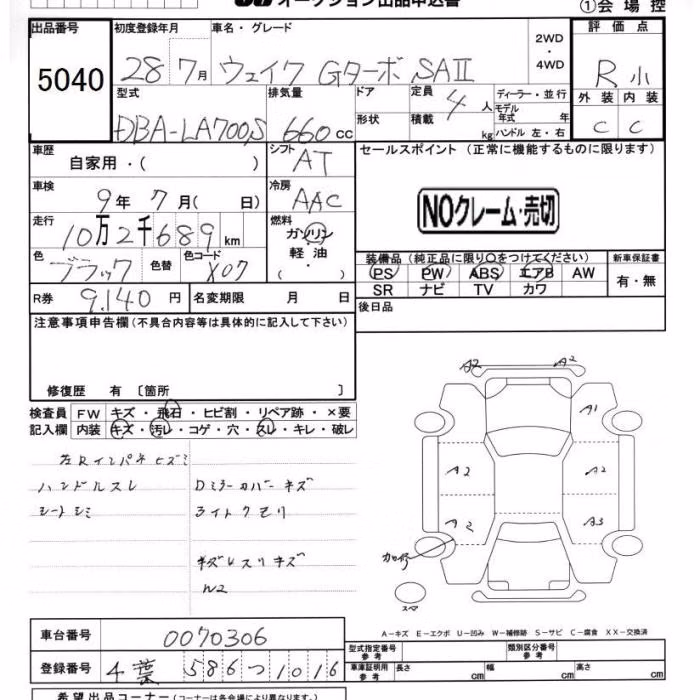 オークション出品申込書
①会場控
出品番号
5040
初度登録年月
28 7月
車名・グレード
ウェイク Gターボ SAⅡ
2WD
・
4WD
評価点
R 小
外装 内装
C C
型式
DBA-LA700S
排気量
660cc
ドア
形状
定員
4人
積載
kg
ディーラー・並行
モデル
年式 年
ハンドル 左・右
車歴
自家用・( )
シフト
AT
セールスポイント (正常に機能するものに限ります)
NOクレーム・売切
車検
9年 7月( 日)
冷房
AAC
走行
10万2千689km
燃料
ガソリン
軽油
・
色
ブラック
色替
色コード
X07
R券
9,140円
名変期限 月 日
装備品(純正品に限り○をつけてください)
新車保証書
PS PW ABS エアB AW
SR ナビ TV カワ
有・無
後日品
注意事項申告欄(不具合内容等は具体的に記入して下さい)
修復歴 有 〔箇所 〕
検査員 FW キズ・飛石・ヒビ割・リペア跡・×要
記入欄 内装 キズ・汚レ・コゲ・穴・スレ・キレ・破レ
左Rインパネヒズミ
ハンドルスレ
シートシミ
Dミラーカバーキズ
ライトクモリ
キズレスリキズ
W2
A2 A2
A1
A2 A2
A2 A3
スマ
A-キズ E-エクボ U-凹み W-補修跡 S-サビ C-腐食 XX-交換済
車台番号
0070306
登録番号
千葉 586 つ 1016
型式指定番号
参考
類別区分番号
参考
車庫証明用
参考
長さ cm 幅 cm 高さ cm
希望出品コーナー(コーナーは各会場により異なります。)